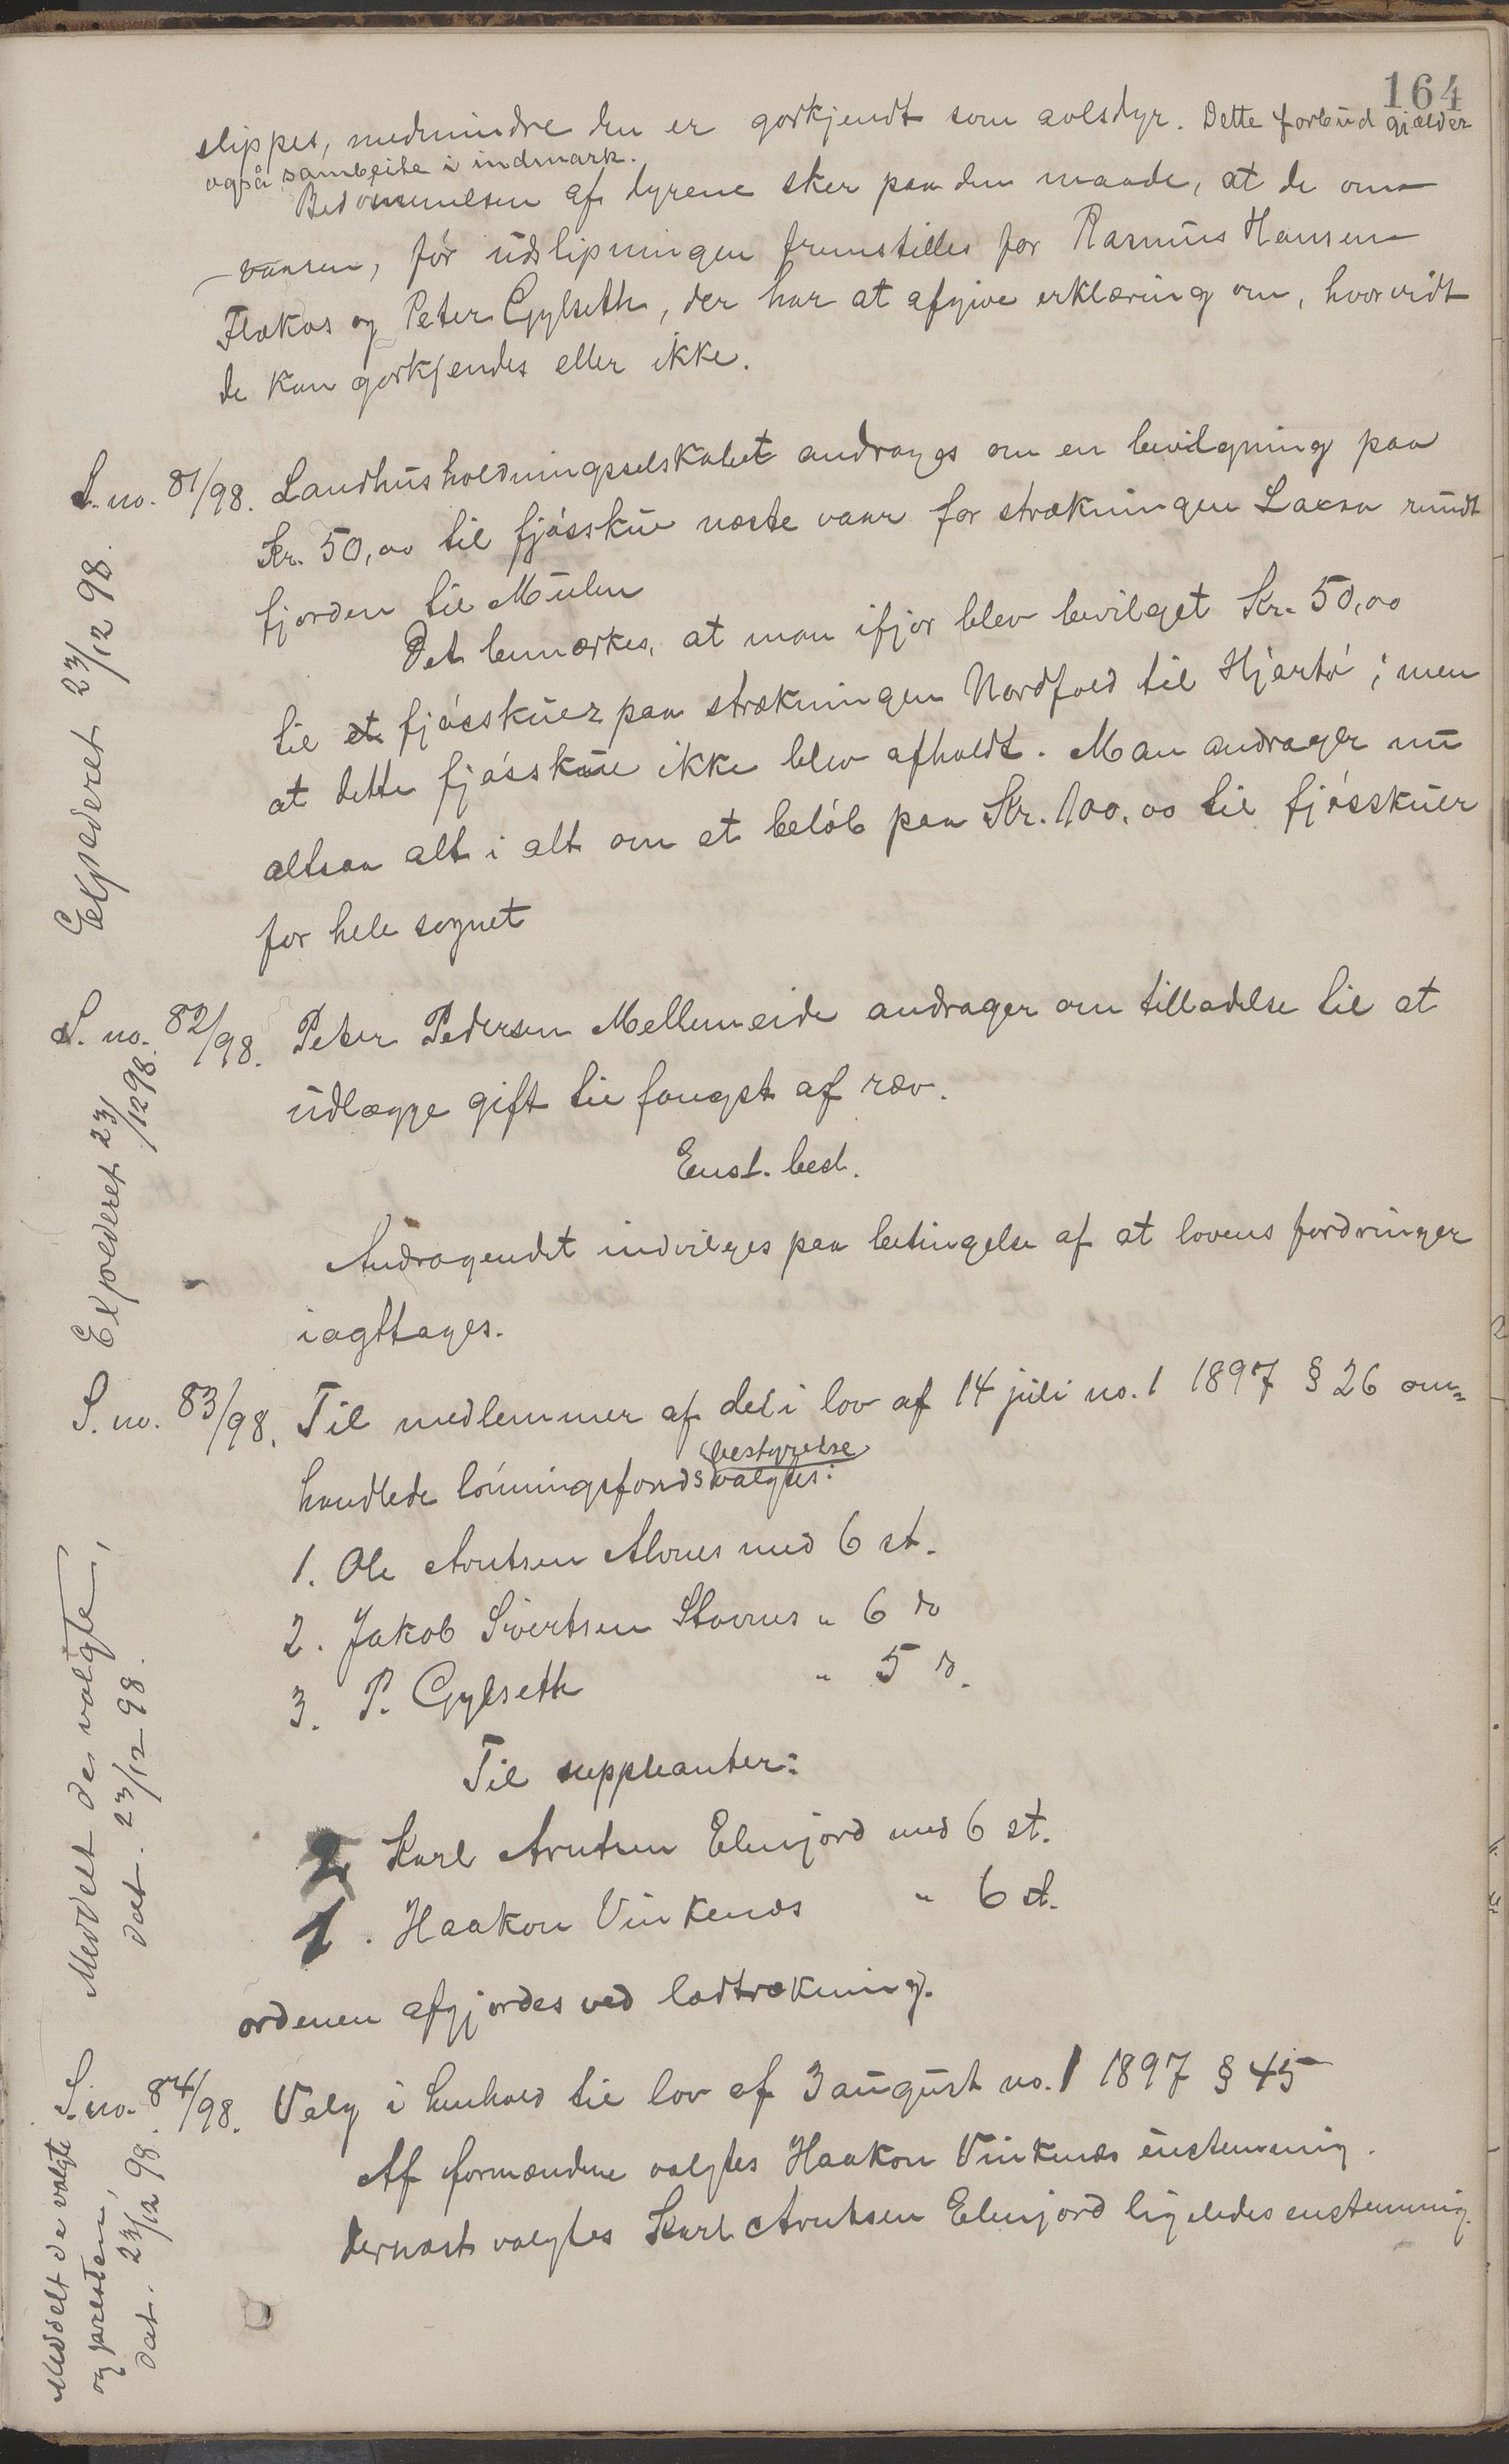 164
slippes, medmindre den er godkjendt som avlsdyr. Dette forbud gjælder
også sambeite i indmark.
Bedømmelsen af dyrene sker paa den maade, at de om
vaaren, før udslipningen fremstilles for Rasmus Hansen
Flakas og Peter Gylseth, der har at afgive erklæring om, hvorvidt
de kan godkjendes eller ikke.
S. no. 81/98. Landhusholdningsselskabet andrages om en bevilgning paa
Kr. 50,00 til fjøsskue næste vaar for strækningen Laxaa rundt
fjorden til Mulen
Det bemærkes, at man ifjor blev bevilget Kr. 50,00
til et fjøsskuer paa strækningen Nordfold til Hjartø; men
at dette fjøsskue ikke blev afholdt. Man andrager nu
altsaa alt i alt om et beløb paa Kr. 100,00 til fjøsskuer
for hele sognet
Expederet 23/12 98.
S. no. 82/98. Peter Pedersen Mellemeide andrager om tilladelse til at
udlægge gift til fangst af ræv.
Enst. besl.
Andragendet indvilges paa betingelse af at lovens fordringer
iagttages.
Expederet 23/12 98.
S. no. 83/98. Til medlemmer af det i lov af 14 juli no. 1 1897 § 26 om-
bestyrelse
handlede lønningsfonds valgtes:
1. Ole Arntsen Alvnes med 6 st.
2. Jakob Sivertsen Stavnes " 6 do
3. P. Gylseth " 5 do.
Til suppleanter:
2 Karl Arntsen Elvejord med 6 st.
1. Haakon Vinkenæs " 6 st.
ordenen afgjordes ved lodtrækning.
Meddelt de valgte,
dat. 23/12 98.
S. no. 84/98. Valg i henhold til lov af 3 august no. 1 1897 § 45
Af formændene valgtes Haakon Vinkenæs enstemmig.
dernæst valgtes Karl Arntsen Elvejord ligeledes enstemmig.
Meddelt de valgte
og presten,
dat. 23/12 98.